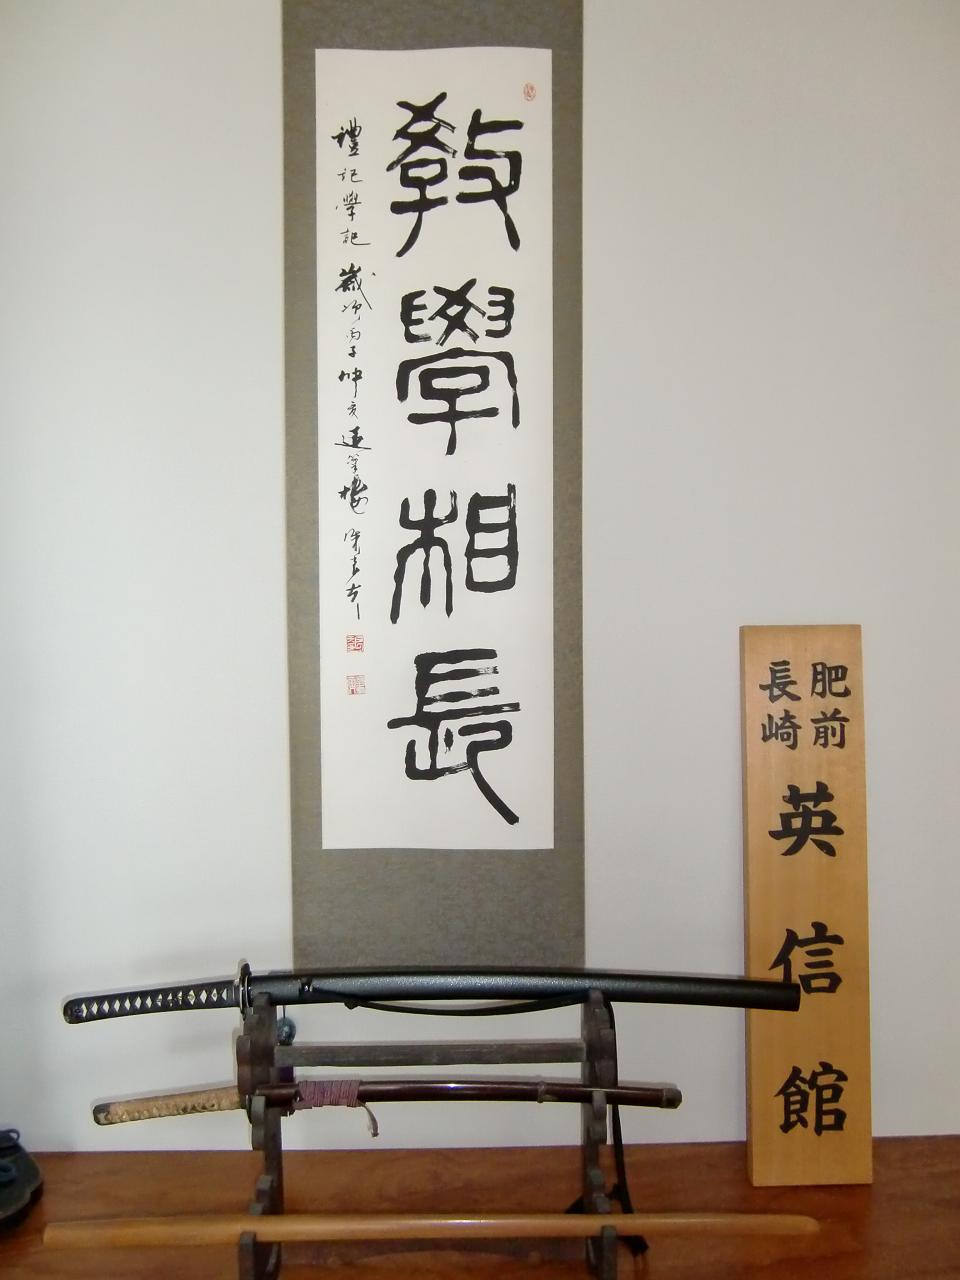 教學相長
禮記學記
歲次丙子仲亥
肥前
長崎
英信館